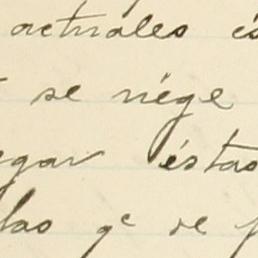 actuales és
se niége
egar éstas
las qe se p